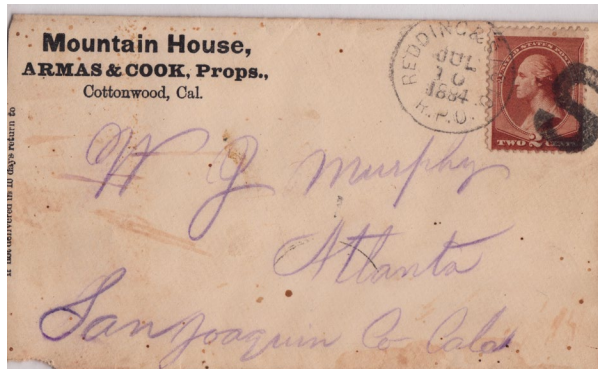 Mountain House,
ARMAS & COOK, Props.,
Cottonwood, Cal.
If not delivered in 10 days return to
REDDING &
JUL
10
1884
R.P.O.
UNITED STATES
TWO 2 CENTS
S
W J Murphy
Atlanta
San Joaquin Co Cala